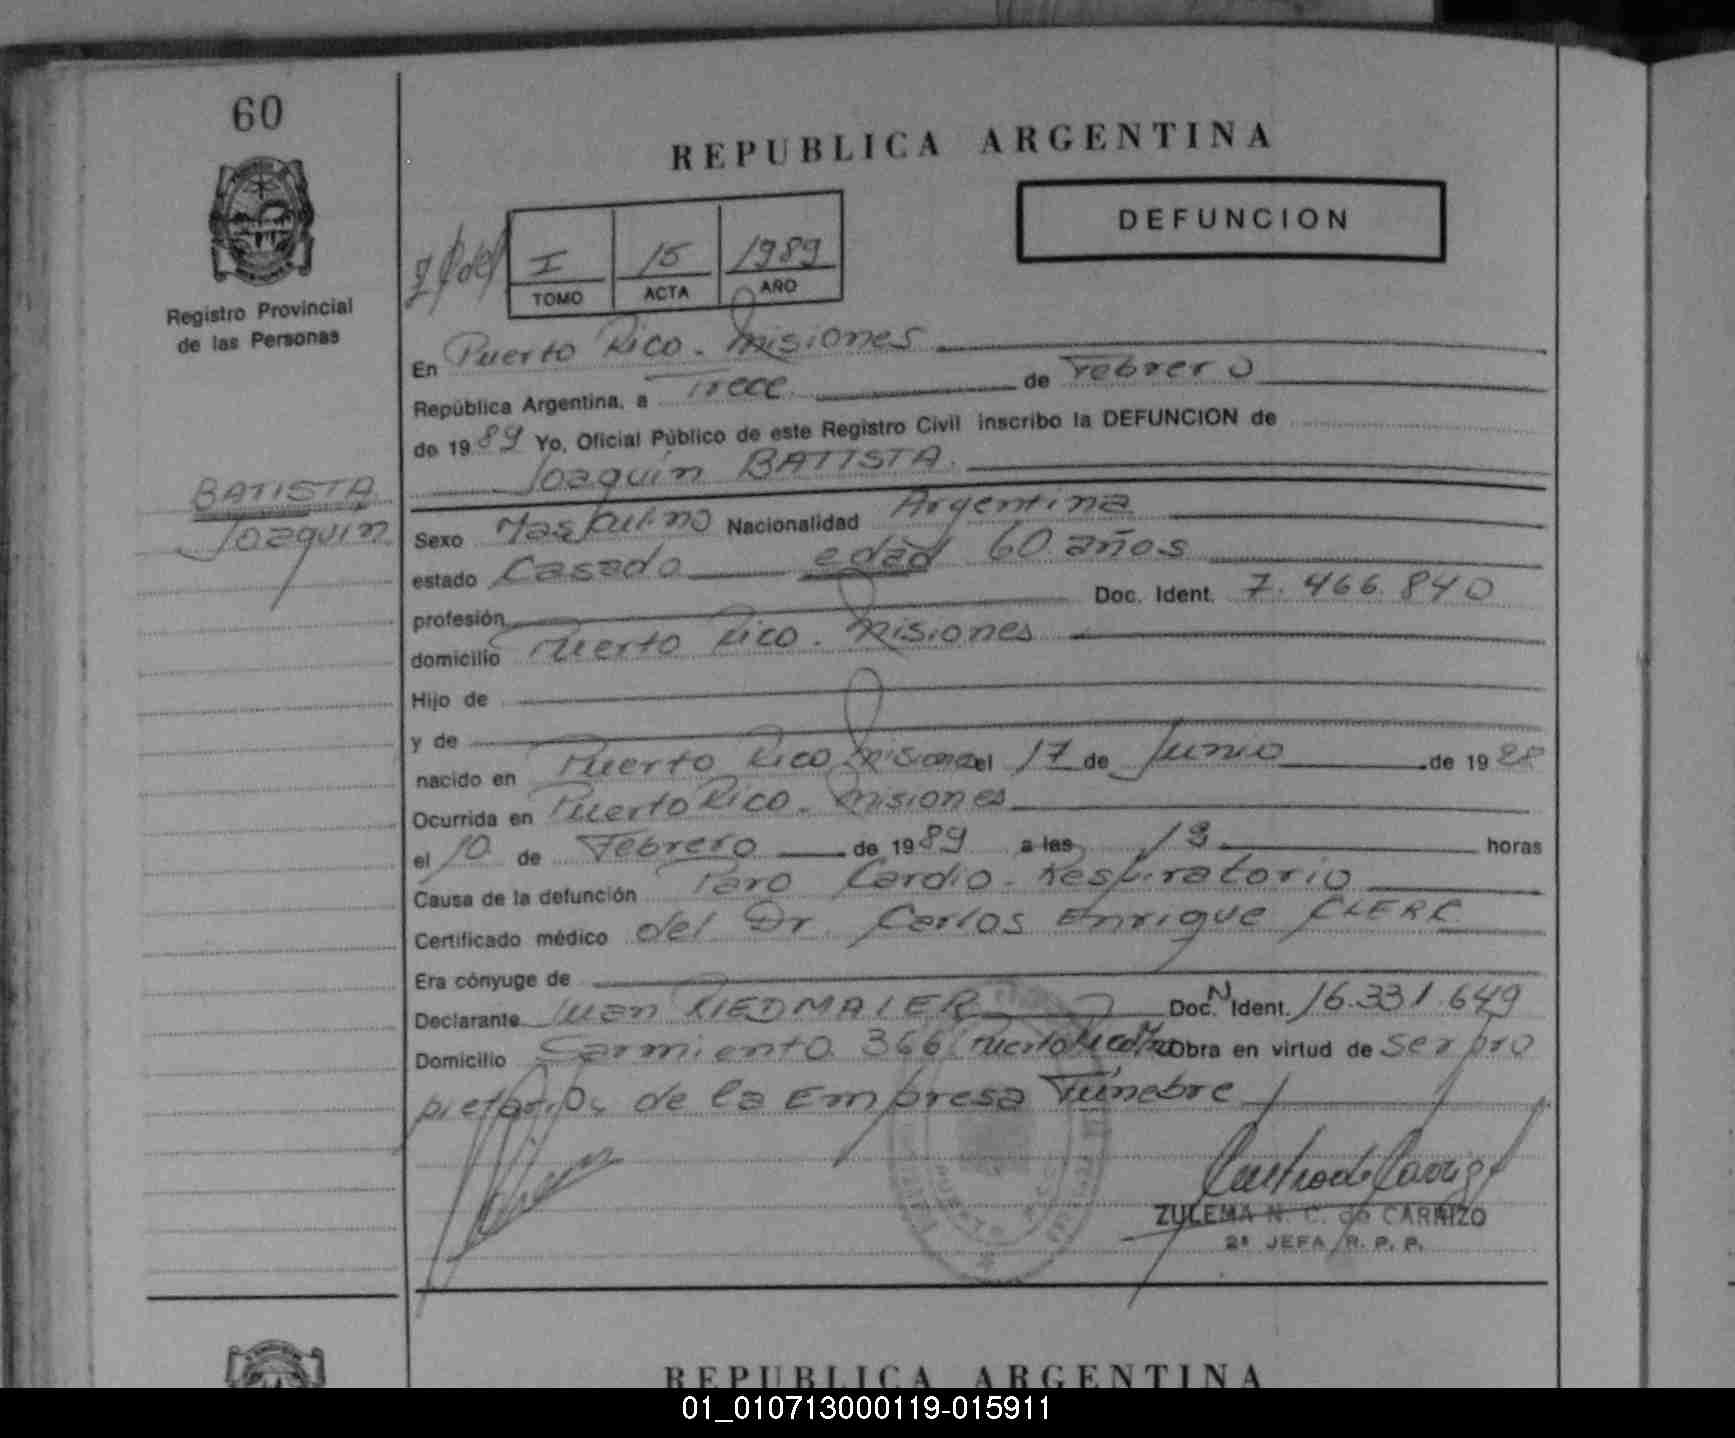 60
REPUBLICA ARGENTINA
DEFUNCION
I 15 1989
TOMO ACTA AÑO
Registro Provincial
de las Personas
En Puerto Rico - Misiones
República Argentina, a Trece de Febrero
de 1989 Yo, Oficial Público de este Registro Civil inscribo la DEFUNCION de
Joaquín BATISTA.
BATISTA
Joaquín
Sexo Masculino Nacionalidad Argentina
estado Casado edad 60 años
profesión Doc. Ident. 7.466.840
domicilio Puerto Rico - Misiones
Hijo de
y de
nacido en Puerto Rico Misiones el 17 de Junio de 1928
Ocurrida en Puerto Rico - Misiones
el 10 de Febrero de 1989 a las 19 horas
Causa de la defunción Paro Cardio-Respiratorio
Certificado médico del Dr. Carlos Enrique CLERC
Era cónyuge de
Declarante Juan RIEDMAIER Doc. N Ident. 16.331.649
Domicilio Sarmiento 366 Puerto Rico Obra en virtud de ser pro
pietario de la Empresa Fúnebre
ZULEMA N. C. de CARRIZO
2ª JEFA R. P. P.
REPUBLICA ARGENTINA
01_010713000119-015911